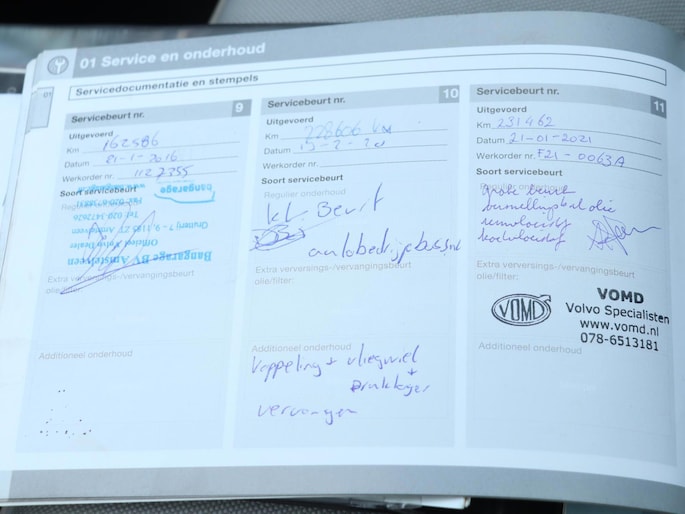 01 Service en onderhoud
01
Servicedocumentatie en stempels
Servicebeurt nr. 9
Uitgevoerd
Km 162586
Datum 21-1-2016
Werkorder nr. 1122355
Soort servicebeurt
Regulier onderhoud
Bangarage BV Amstelveen
Officieel Volvo Dealer
bangarage
Extra verversings-/vervangingsbeurt
olie/filter:
Additioneel onderhoud
Servicebeurt nr. 10
Uitgevoerd
Km 228606 km
Datum
Werkorder nr.
Soort servicebeurt
Regulier onderhoud
kl. Beurt
Extra verversings-/vervangingsbeurt
olie/filter:
Additioneel onderhoud
koppeling + vliegwiel
+
Druklager
vervangen
Servicebeurt nr. 11
Uitgevoerd
Km 231462
Datum 21-01-2021
Werkorder nr. F21-0063A
Soort servicebeurt
Regulier onderhoud
grote beurt
versnellingsbak olie
remvloeistof
koelvloeistof
Extra verversings-/vervangingsbeurt
olie/filter:
VOMD
VOMD
Volvo Specialisten
www.vomd.nl
078-6513181
Additioneel onderhoud